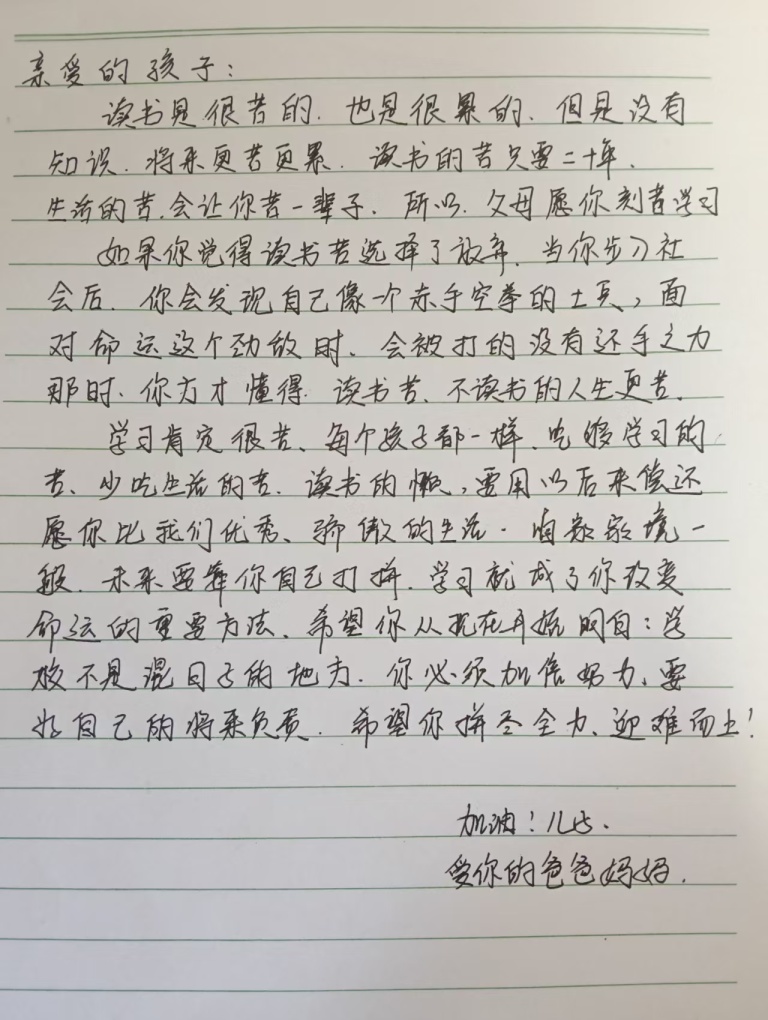 亲爱的孩子:
读书是很苦的.也是很累的.但是没有
知识.将来更苦更累.读书的苦只要二十年.
生活的苦.会让你苦一辈子.所以.父母愿你刻苦学习
如果你觉得读书苦选择了放弃.当你步入社
会后.你会发现自己像一个赤手空拳的士兵,面
对命运这个劲敌时、会被打的没有还手之力
那时.你方才懂得.读书苦、不读书的人生更苦.
学习肯定很苦、每个孩子都一样、吃够学习的
苦、少吃生活的苦.读书的懒,要用以后来偿还
愿你比我们优秀、骄傲的生活.咱家家境一
般.未来要靠你自己打拼.学习就成了你改变
命运的重要方法、希望你从现在开始明白:学
校不是混日子的地方.你必须加倍努力、要
为自己的将来负责.希望你拼尽全力、迎难而上!
加油!儿子.
爱你的爸爸妈妈.